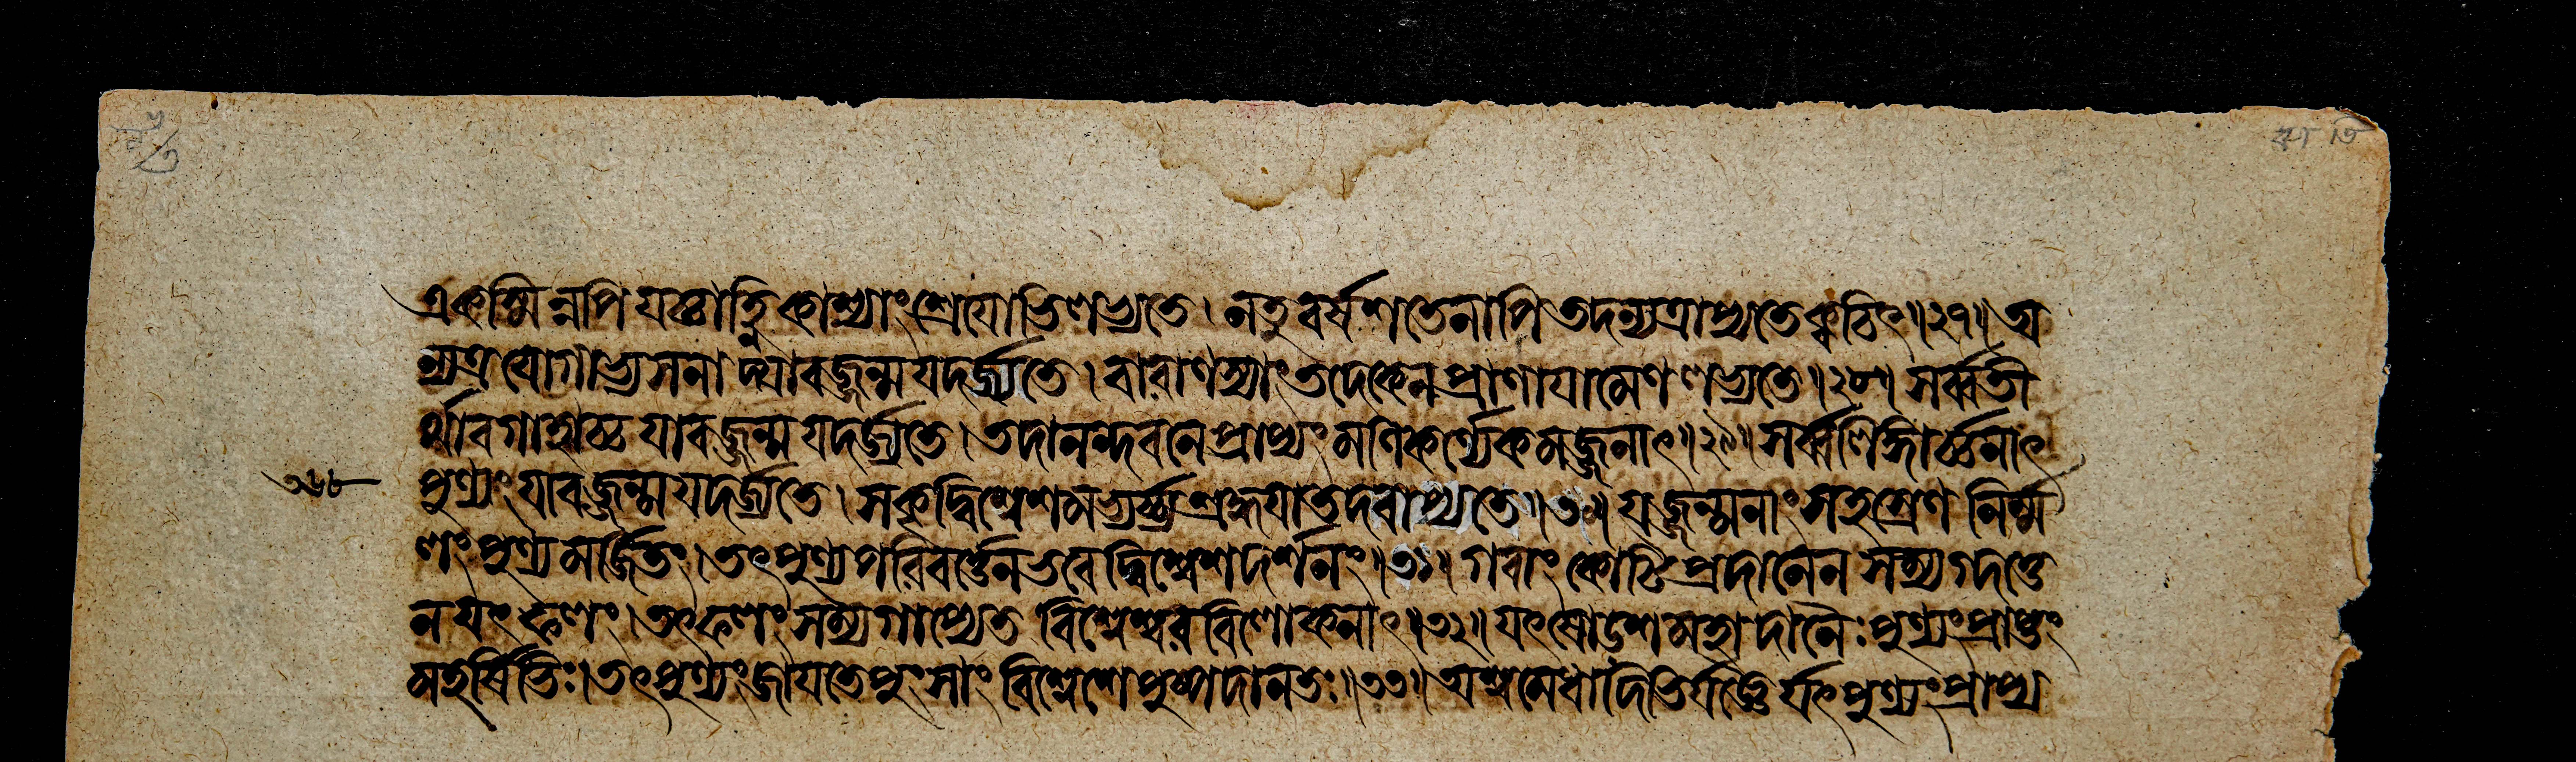 একস্মিন্নপি যচ্চাহ্নি কাশ্যাং শ্রেযোভিলভ্যতে। নতু বর্ষশতেনাপি তদন্যত্রাপ্যতে ক্বচিৎ॥২৭॥ অ
ন্যত্র যোগাভ্যসনাদ্যাবজ্জন্ম যদর্জ্যতে। বারাণস্যাং তদেকেন প্রাণাযামেণ লভ্যতে॥২৮॥ সর্ব্বতী
র্থাবগাহাচ্চ যাবজ্জন্ম যদর্জ্যতে। তদানন্দবনে প্রাপ্যং মণিকর্ণ্যেকমজ্জনাৎ॥২৯॥ সর্ব্বলিঙ্গার্চ্চনাৎ
পুণ্যং যাবজ্জন্ম যদর্জ্যতে। সকৃদ্বিশ্বেশমভ্যর্চ্য শ্রদ্ধযা তদবাপ্যতে॥৩০॥ যজ্জন্মনাং সহস্রেণ নির্ম্ম
লং পুণ্যমর্জ্জিতং। তৎপুণ্যপরিবর্ত্তেন ভবেদ্বিশ্বেশদর্শনং॥৩১॥ গবাং কোটিপ্রদানেন সম্যগ্দত্তে
ন যৎ ফলং। তৎফলং সম্যগাপ্যেত বিশ্বেশ্বরবিলোকনাৎ॥৩২॥ যৎষোডশমহাদানৈঃ পুণ্যং প্রাপ্তং
মহর্ষিভিঃ। তৎপুণ্যং জাযতে পুংসাং বিশ্বেশে পুষ্পদানতঃ॥৩৩॥ অশ্বমেধাদিভির্যজ্ঞৈর্যৎপুণ্যং প্রাপ্য